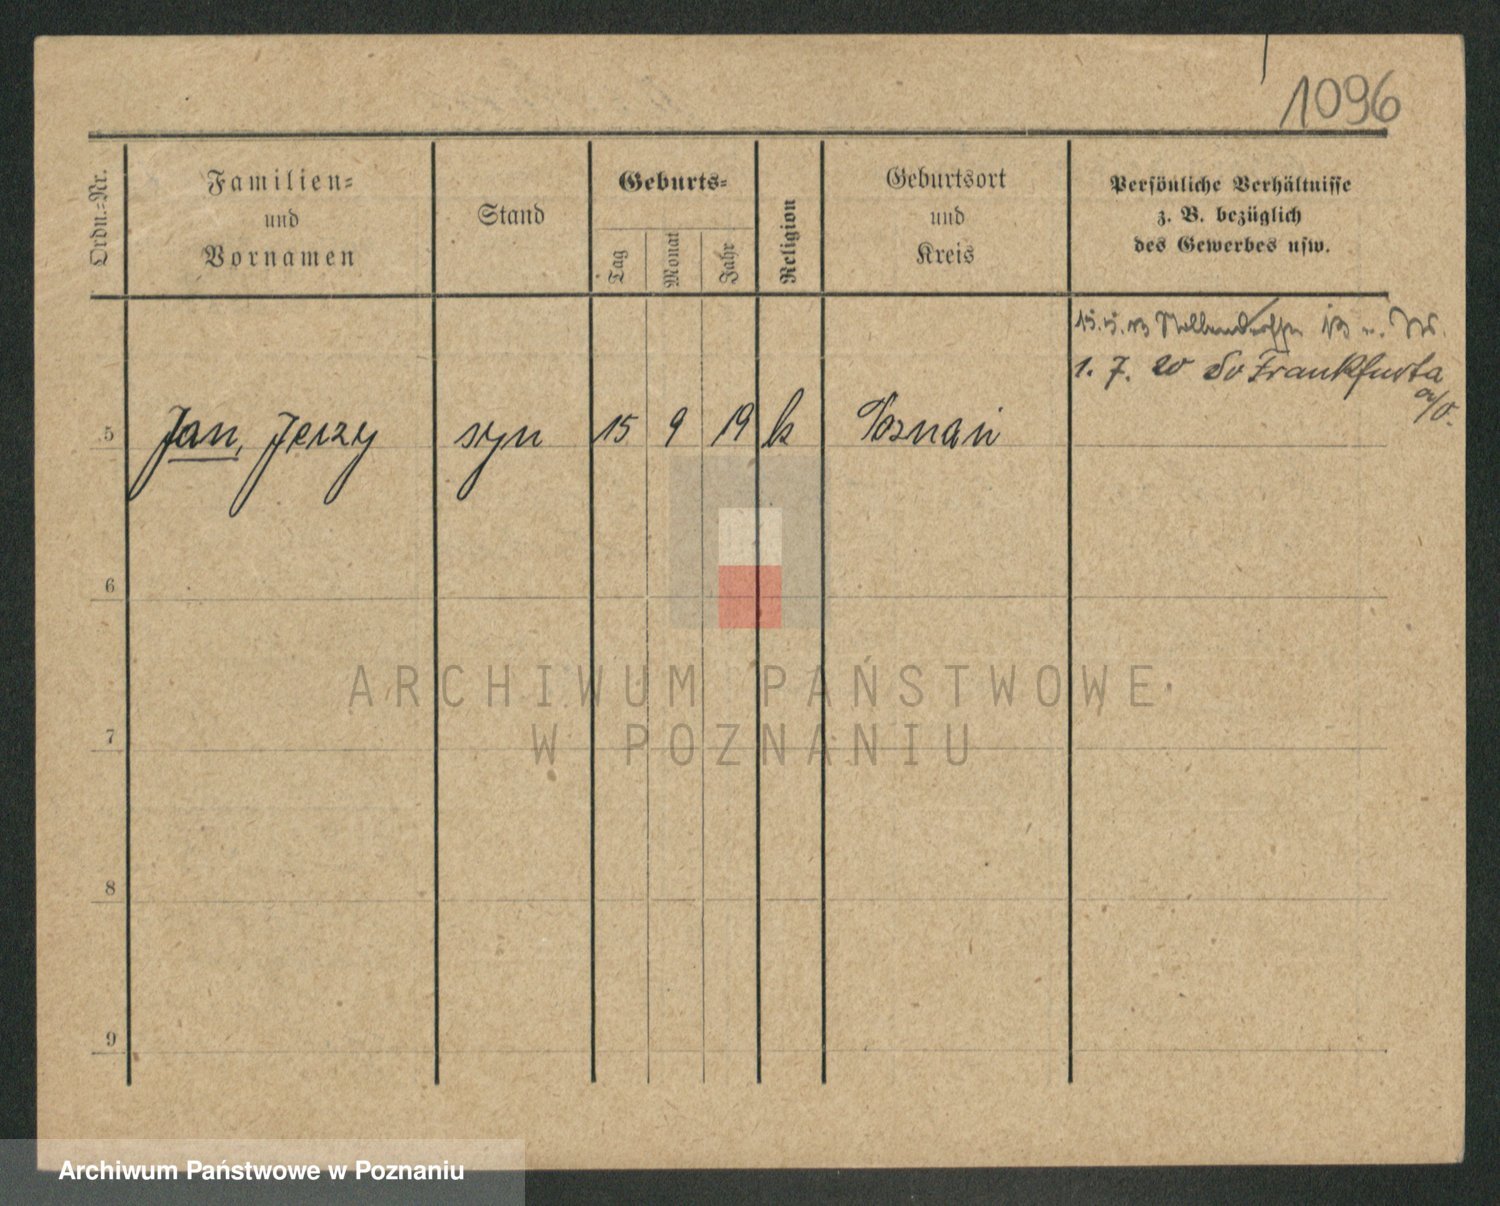 1096
Ordn.-Nr.
Familien-
und
Vornamen
Stand
Geburts-
Tag
Monat
Jahr
Religion
Geburtsort
und
Kreis
Persönliche Verhältnisse
z. B. bezüglich
des Gewerbes usw.
1. 7. 20 do Frankfurta
a/O.
5 Jan, Jerzy syn 15 9 19 k Poznań
6
7
8
9
ARCHIWUM PAŃSTWOWE
W POZNANIU
Archiwum Państwowe w Poznaniu